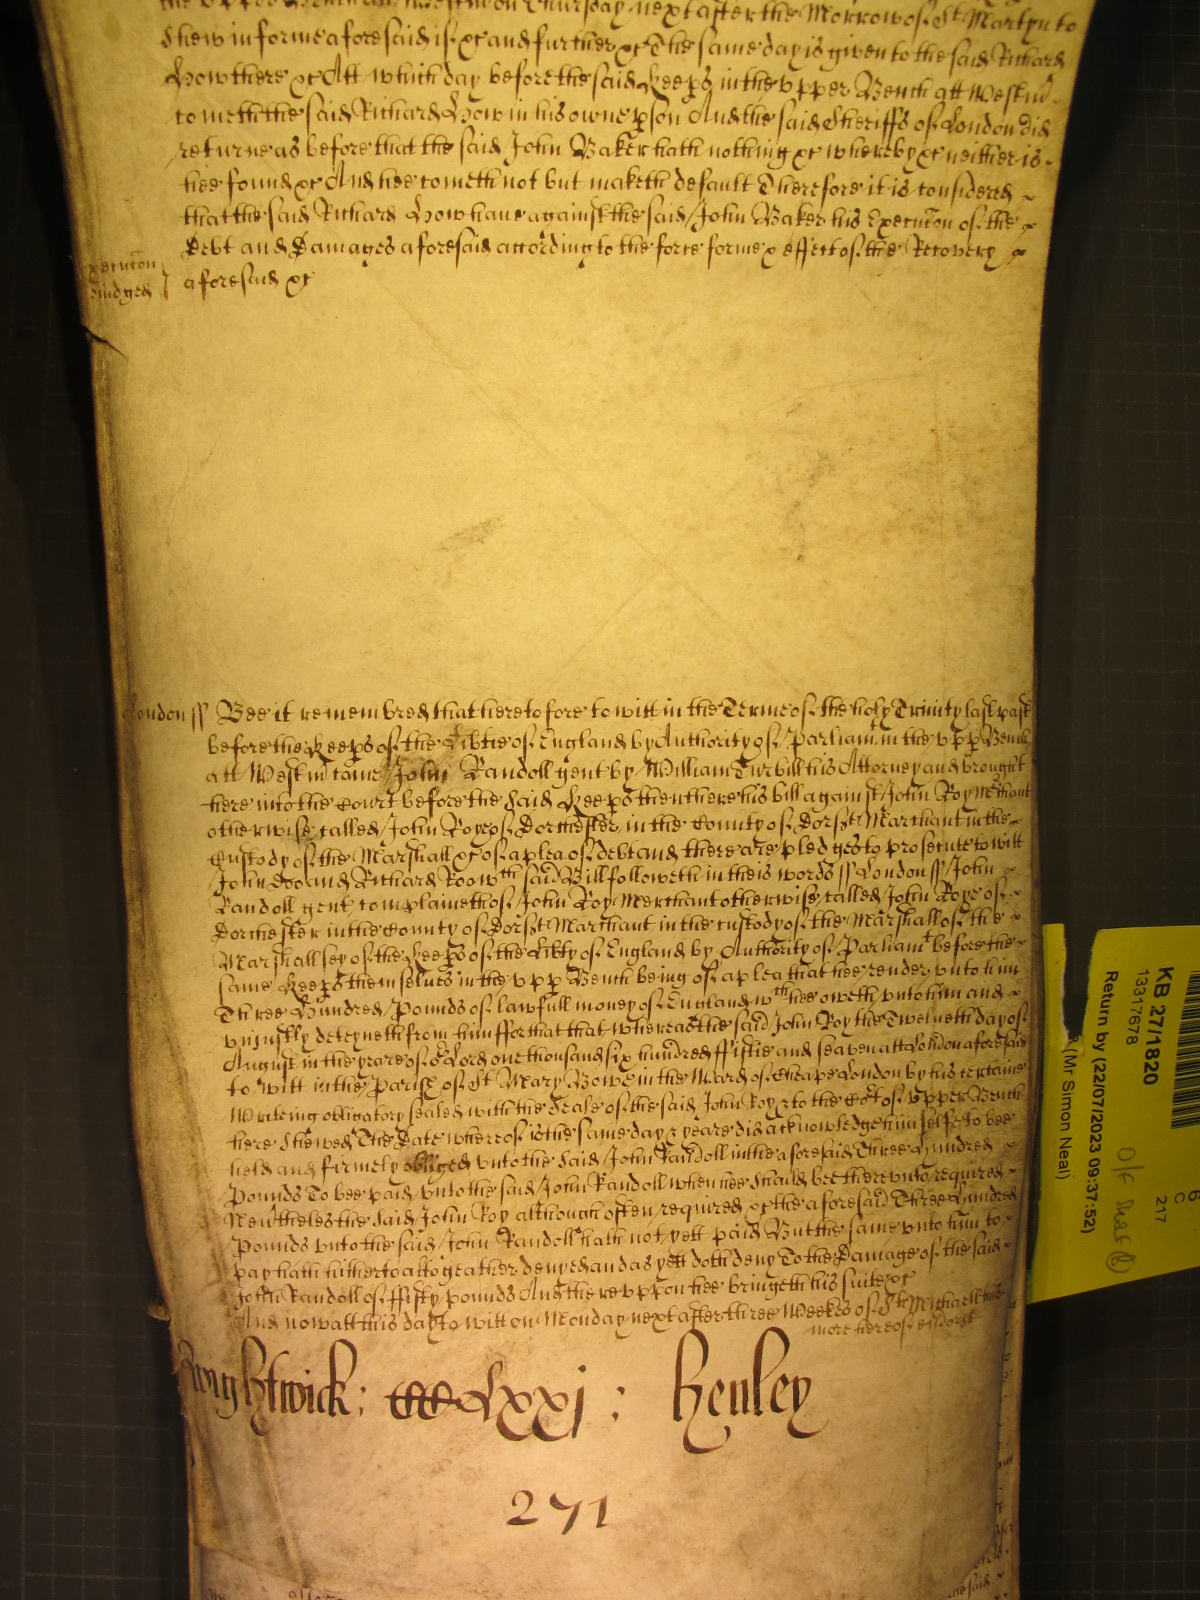 the upper Bench att Westm on Thursday next after the Morrow of St Martyn to
shew in forme aforesaid if &c and further &c The same day is given to the said Richard
How there &c Att which day before the said Keeps in the Upper Bench att Westm
cometh the said Richard How in his owne pson And the said Sheriffs of London did
returne as before that the said John Baker hath nothing &c whereby &c neither is
hee found &c And hee cometh not but maketh default Therefore it is considered
that the said Richard How have against the said John Baker his Execucon of the
Debt and Damages aforesaid according to the force forme & effect of the Recovery
aforesaid &c
Execucon
Judged
London ss Bee it remembred that heretofore to witt in the Terme of the holy Trinity last past
before the Keeps of the Libtie of England by Authority of Parliamt in the Upp Bench
att Westm came John Randoll gent by William Turvill his Attorney and brought
here into the Court before the said Keeps then there his bill against John Roy Merchant
otherwise called John Roye of Dorchester in the County of Dorst Marchant in the
Custody of the Marshall &c of a plea of debt and there are pledges to prosecute to witt
John Doo and Richard Roo wch said Bill followeth in theis words ss London ss John
Randoll gent complaineth of John Roy Merchant otherwise called John Roye of
Dorchester in the County of Dorst Marchant in the custody of the Marshall of the
Marshallsey of the Keeps of the Libty of England by Authority of Parliamt before the
same Keeps themselves in the upp Bench being of a plea that hee render unto him
Three Hundred Pounds of lawfull money of England wch hee oweth unto him and
uniustly deteyneth from him ffor that that whereas the said John Roy the Twelueth day of
August in the yeare of or Lord one thousand six hundred fiftie and seaven att London aforesaid
to witt in the Parish of St Mary Bowe in the Ward of Cheape London by his certaine
Writeing obligatory sealed with the Seale of the said John Roy & to the Cort of Upper Bench
here shewed The Date whereof is the same day & yeare did acknowledge himselfe To bee
held and firmely obliged unto the said John Randoll in the aforesaid Three Hundred
Pounds To bee paid unto the said John Randoll when hee should bee thereunto required
Nevtheles the said John Roy although often required &c the aforesaid Three Hundred
Pounds unto the said John Randoll hath not yett paid But the same unto him to
pay hath hitherto altogeather denyed and as yett doth deny To the Damage of the said
John Randoll of ffifty pounds And thereuppon hee bringeth his suite &c
And now att this day to witt on Monday next after three Weekes of St Michaell this
more hereof endorst
Wightwick : CCCLxxj : Henley
271
KB 27/1820
13317678
Return by (22/07/2023 09:37:52)
(Mr Simon Neal)
C
217